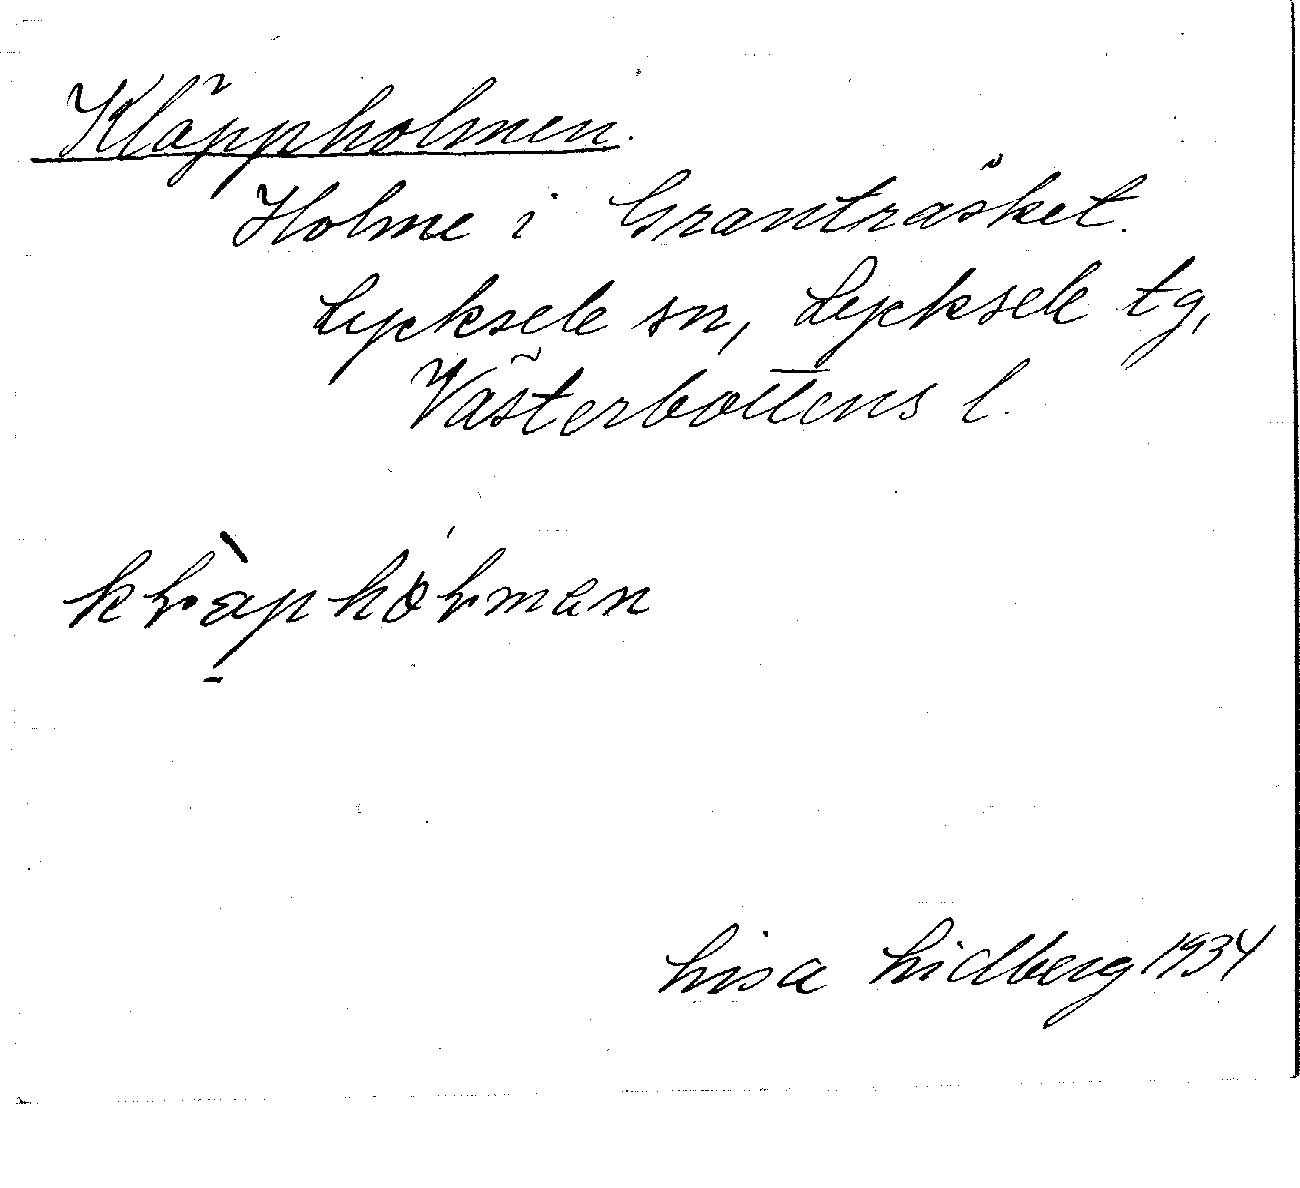 Kläppholmen.
Holme i Granträsket.
Lycksele sn, Lycksele tg,
Västerbottens l.
Lisa Lidberg 1934